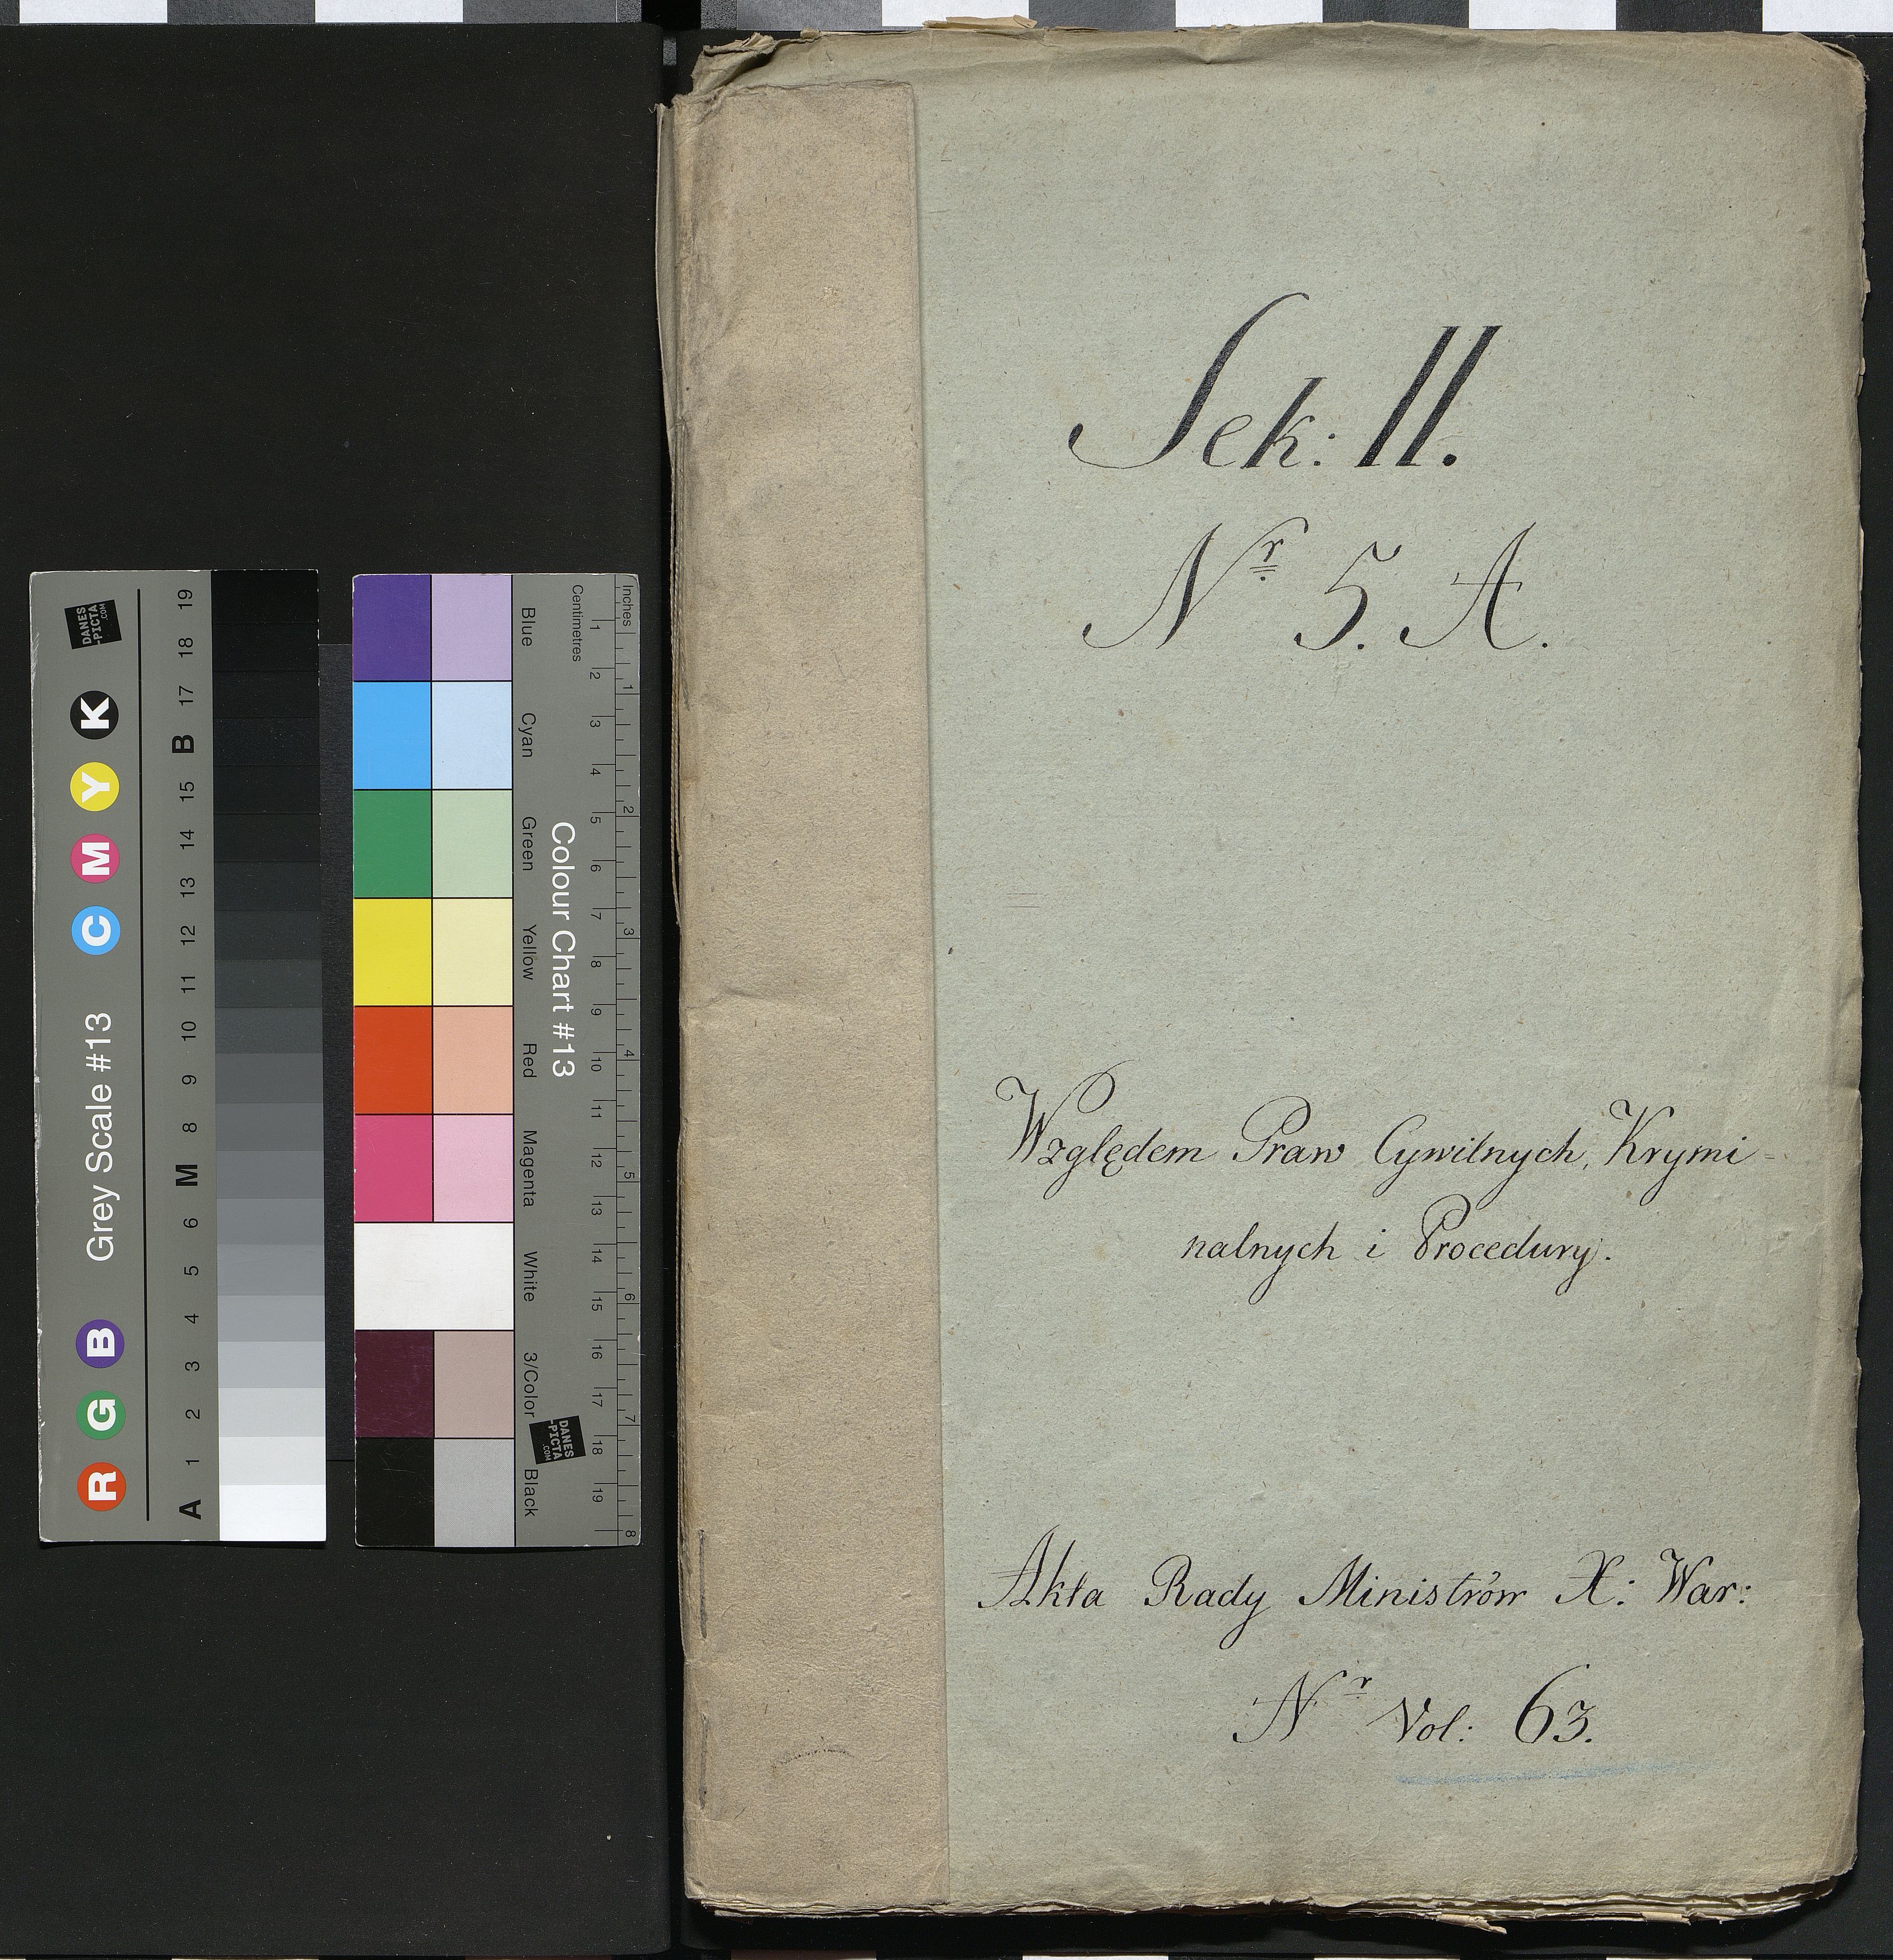 Sek: II.
Nr 5. A.
Względem Praw Cywilnych, Krymi=
nalnych i Procedury.
Akta Rady Ministrów X: War:
Nr Vol: 63.
Grey Scale #13
R G B C M Y K
A 1 2 3 4 5 6 M 8 9 10 11 12 13 14 15 B 17 18 19
DANES
-PICTA
.COM
Colour Chart #13
Blue Cyan Green Yellow Red Magenta White 3/Color Black
Centimetres
1 2 3 4 5 6 7 8 9 10 11 12 13 14 15 16 17 18 19
Inches
1 2 3 4 5 6 7 8
DANES
-PICTA
.COM